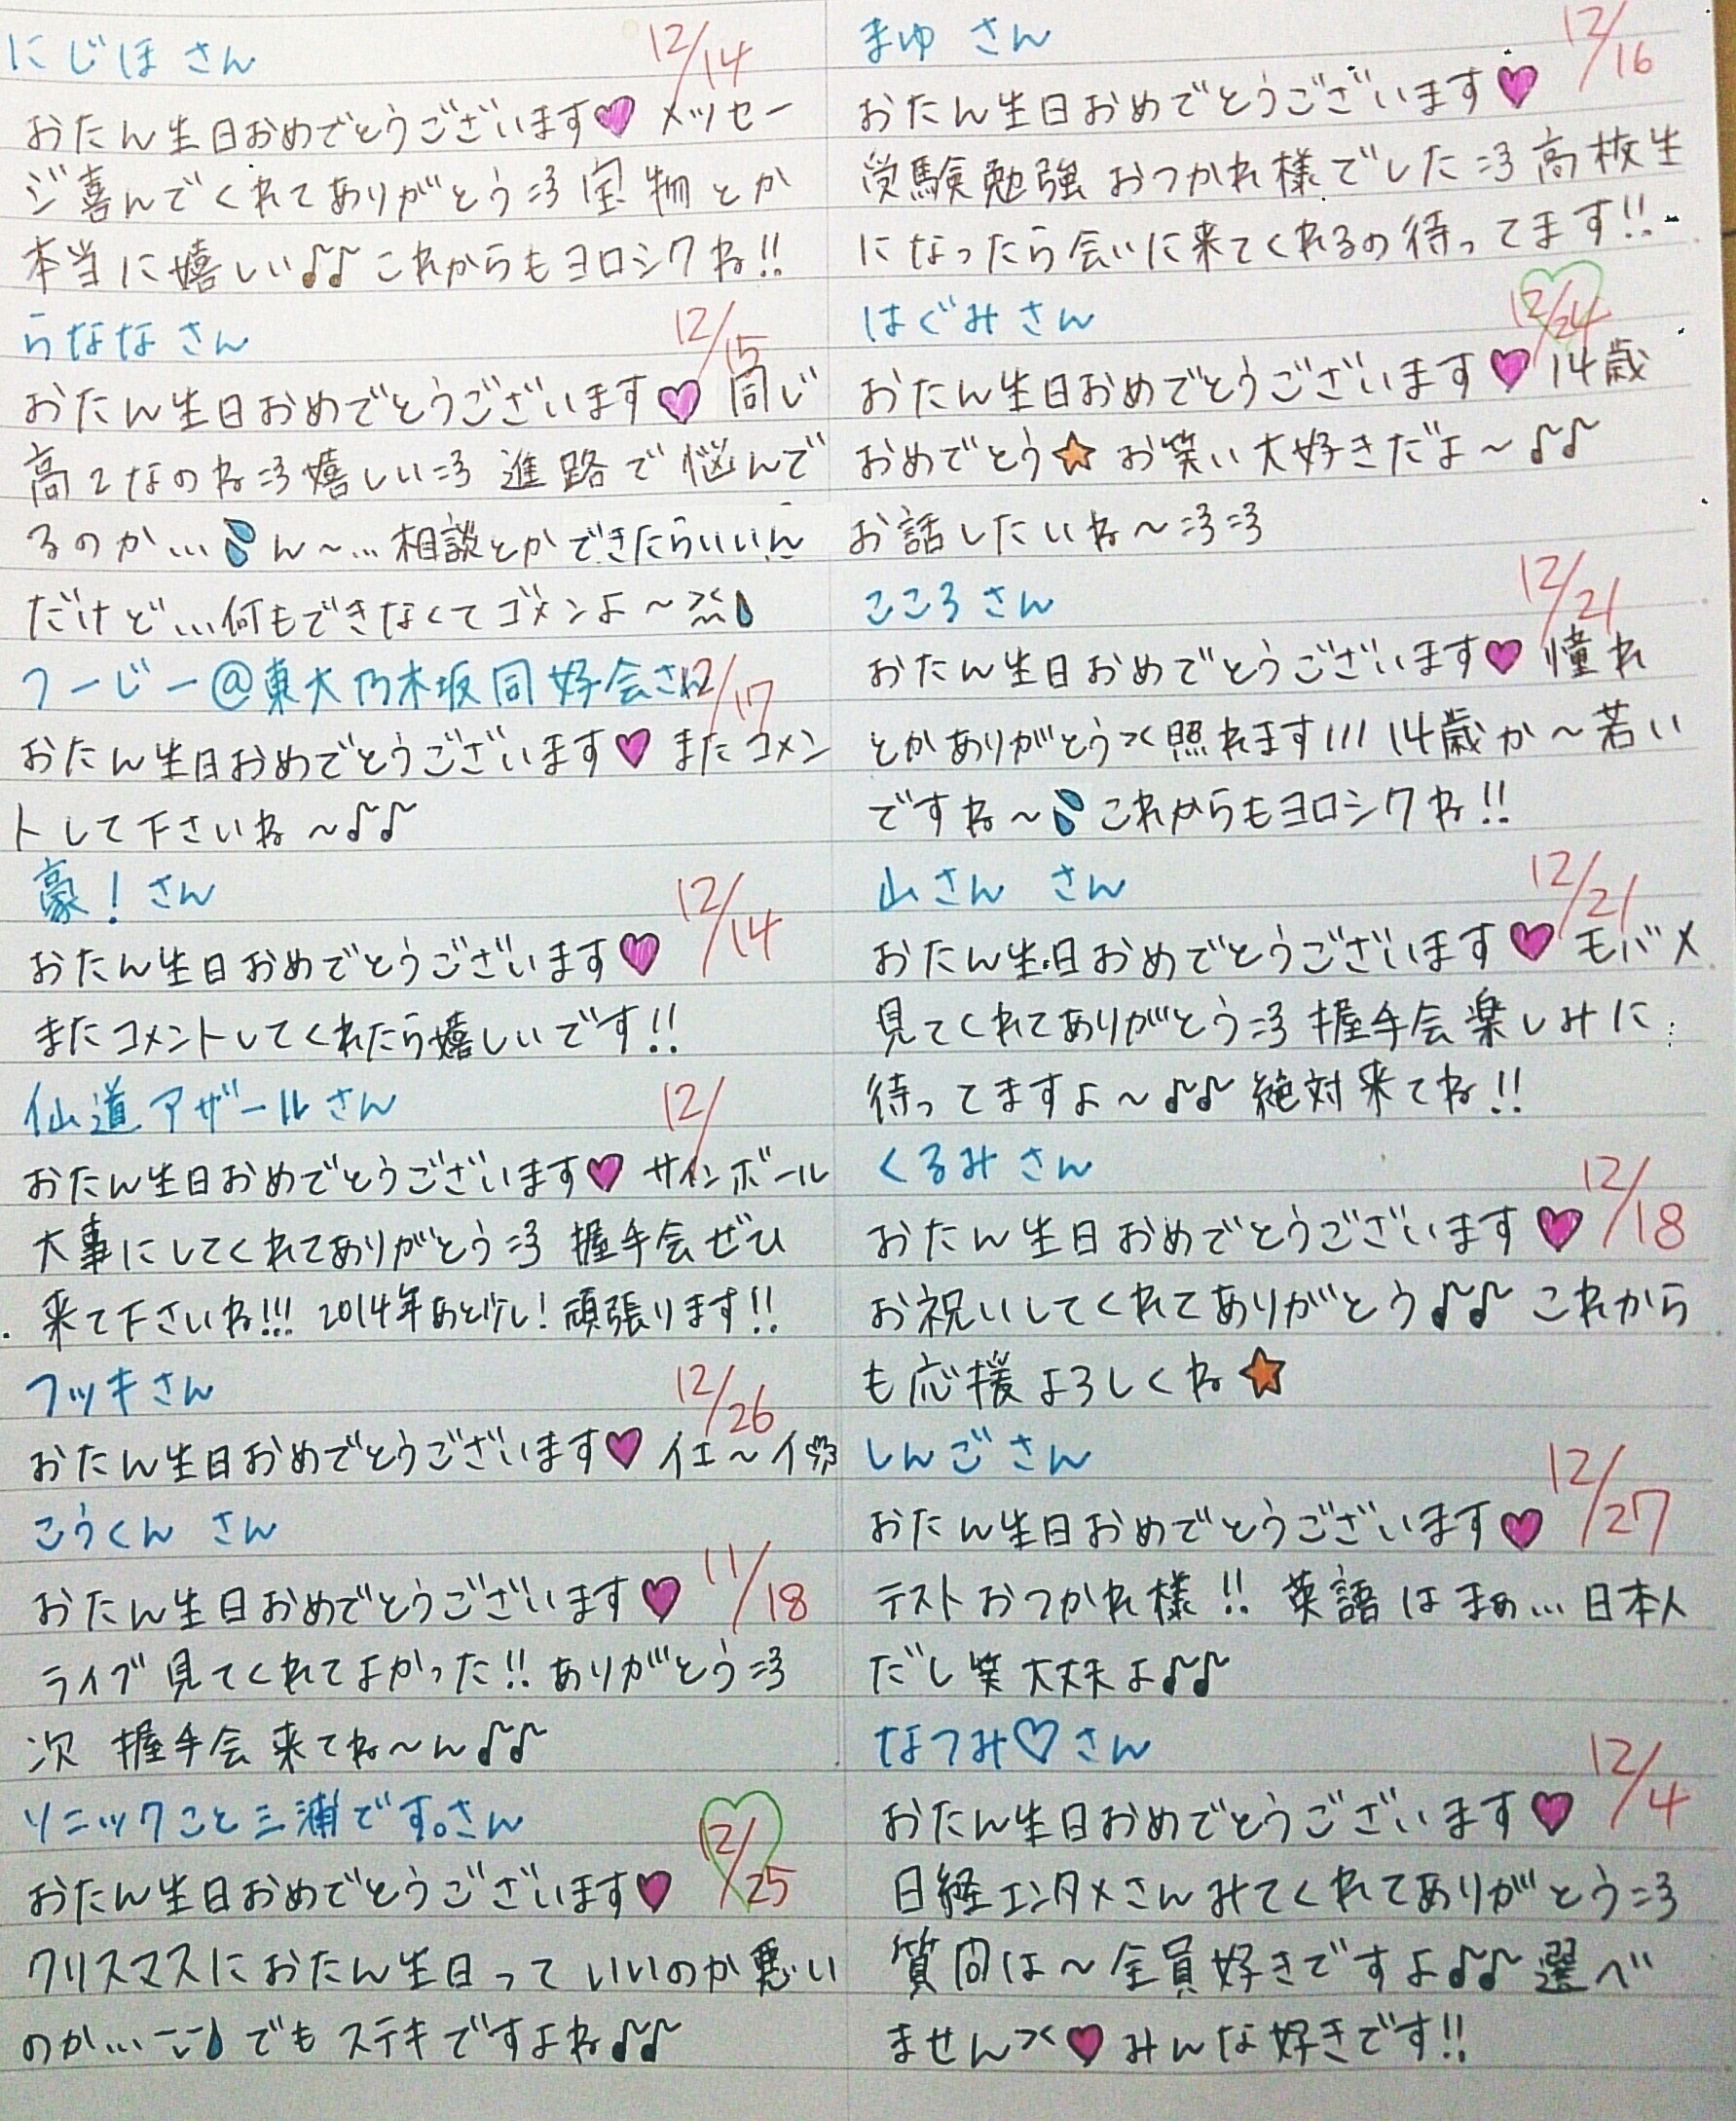 にじほさん 12/14
おたん生日おめでとうございます♥ メッセー
ジ喜んでくれてありがとう:3 宝物とか
本当に嬉しい♪♪ これからもヨロシクね!!
らななさん 12/15
おたん生日おめでとうございます♥ 同じ
高2なのね:3 嬉しい:3 進路で悩んで
るのか…💦ん〜…相談とかできたらいいん
だけど…何もできなくてゴメンよ〜
つーじー@東大乃木坂同好会さん 12/17
おたん生日おめでとうございます♥ またコメン
トして下さいね〜♪♪
豪!さん 12/14
おたん生日おめでとうございます♥
またコメントしてくれたら嬉しいです!!
仙道アザールさん 12/
おたん生日おめでとうございます♥ サインボール
大事にしてくれてありがとう:3 握手会ぜひ
来て下さいね!!! 2014年あと少し!頑張ります!!
フッキさん 12/26
おたん生日おめでとうございます♥ イエ〜イ
こうくん さん 11/18
おたん生日おめでとうございます♥
ライブ見てくれてよかった!! ありがとう:3
次 握手会来てね〜ん♪♪
ソニックこと三浦です。さん 12/25
おたん生日おめでとうございます♥
クリスマスにおたん生日って いいのか悪い
のか… でもステキですよね♪♪
まゆ さん 12/16
おたん生日おめでとうございます♥
受験勉強おつかれ様でした:3 高校生
になったら会いに来てくれるの待ってます!!
はぐみさん 12/24
おたん生日おめでとうございます♥ 14歳
おめでとう★ お笑い大好きだよ〜♪♪
お話したいね〜:3:3
こころさん 12/21
おたん生日おめでとうございます♥ 憧れ
とかありがとう>< 照れます/// 14歳か〜若い
ですね〜💦これからもヨロシクね!!
山さん さん 12/21
おたん生日おめでとうございます♥ モバメ
見てくれてありがとう:3 握手会楽しみに
待ってますよ〜♪♪ 絶対来てね!!
くるみさん 12/18
おたん生日おめでとうございます♥
お祝いしてくれてありがとう♪♪ これから
も応援よろしくね★
しんごさん 12/27
おたん生日おめでとうございます♥
テストおつかれ様!! 英語はまぁ…日本人
だし笑 大丈夫よ♪♪
なつみ♡さん 12/4
おたん生日おめでとうございます♥
日経エンタメさんみてくれてありがとう:3
質問は〜全員好きですよ♪♪ 選べ
ません><♥ みんな好きです!!